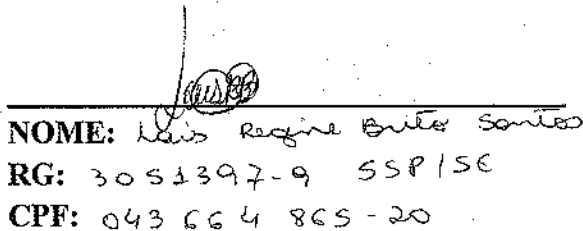 NOME: Laís Regine Brito Santos
RG: 3051397-9 SSP/SE
CPF: 043 664 865-20